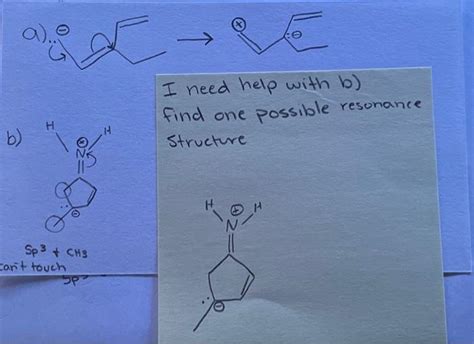 a)
I need help with b)
find one possible resonance
structure
b)
H
H
N
H
H
N
Sp³ & CH3
can't touch
sp³